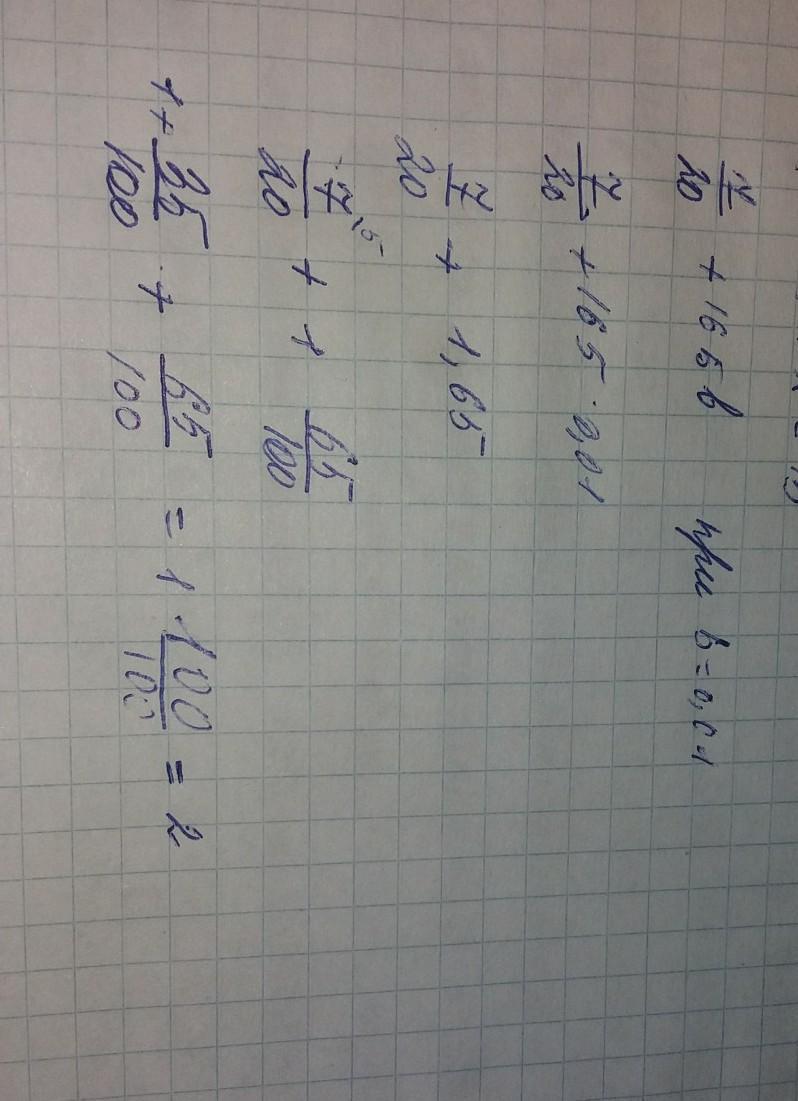 7/20 + 165b при b=0,01
7/20 + 165 · 0,01
7/20 + 1,65
7/20 ·5 + 1 65/100
1 + 35/100 + 65/100 = 1 100/100 = 2